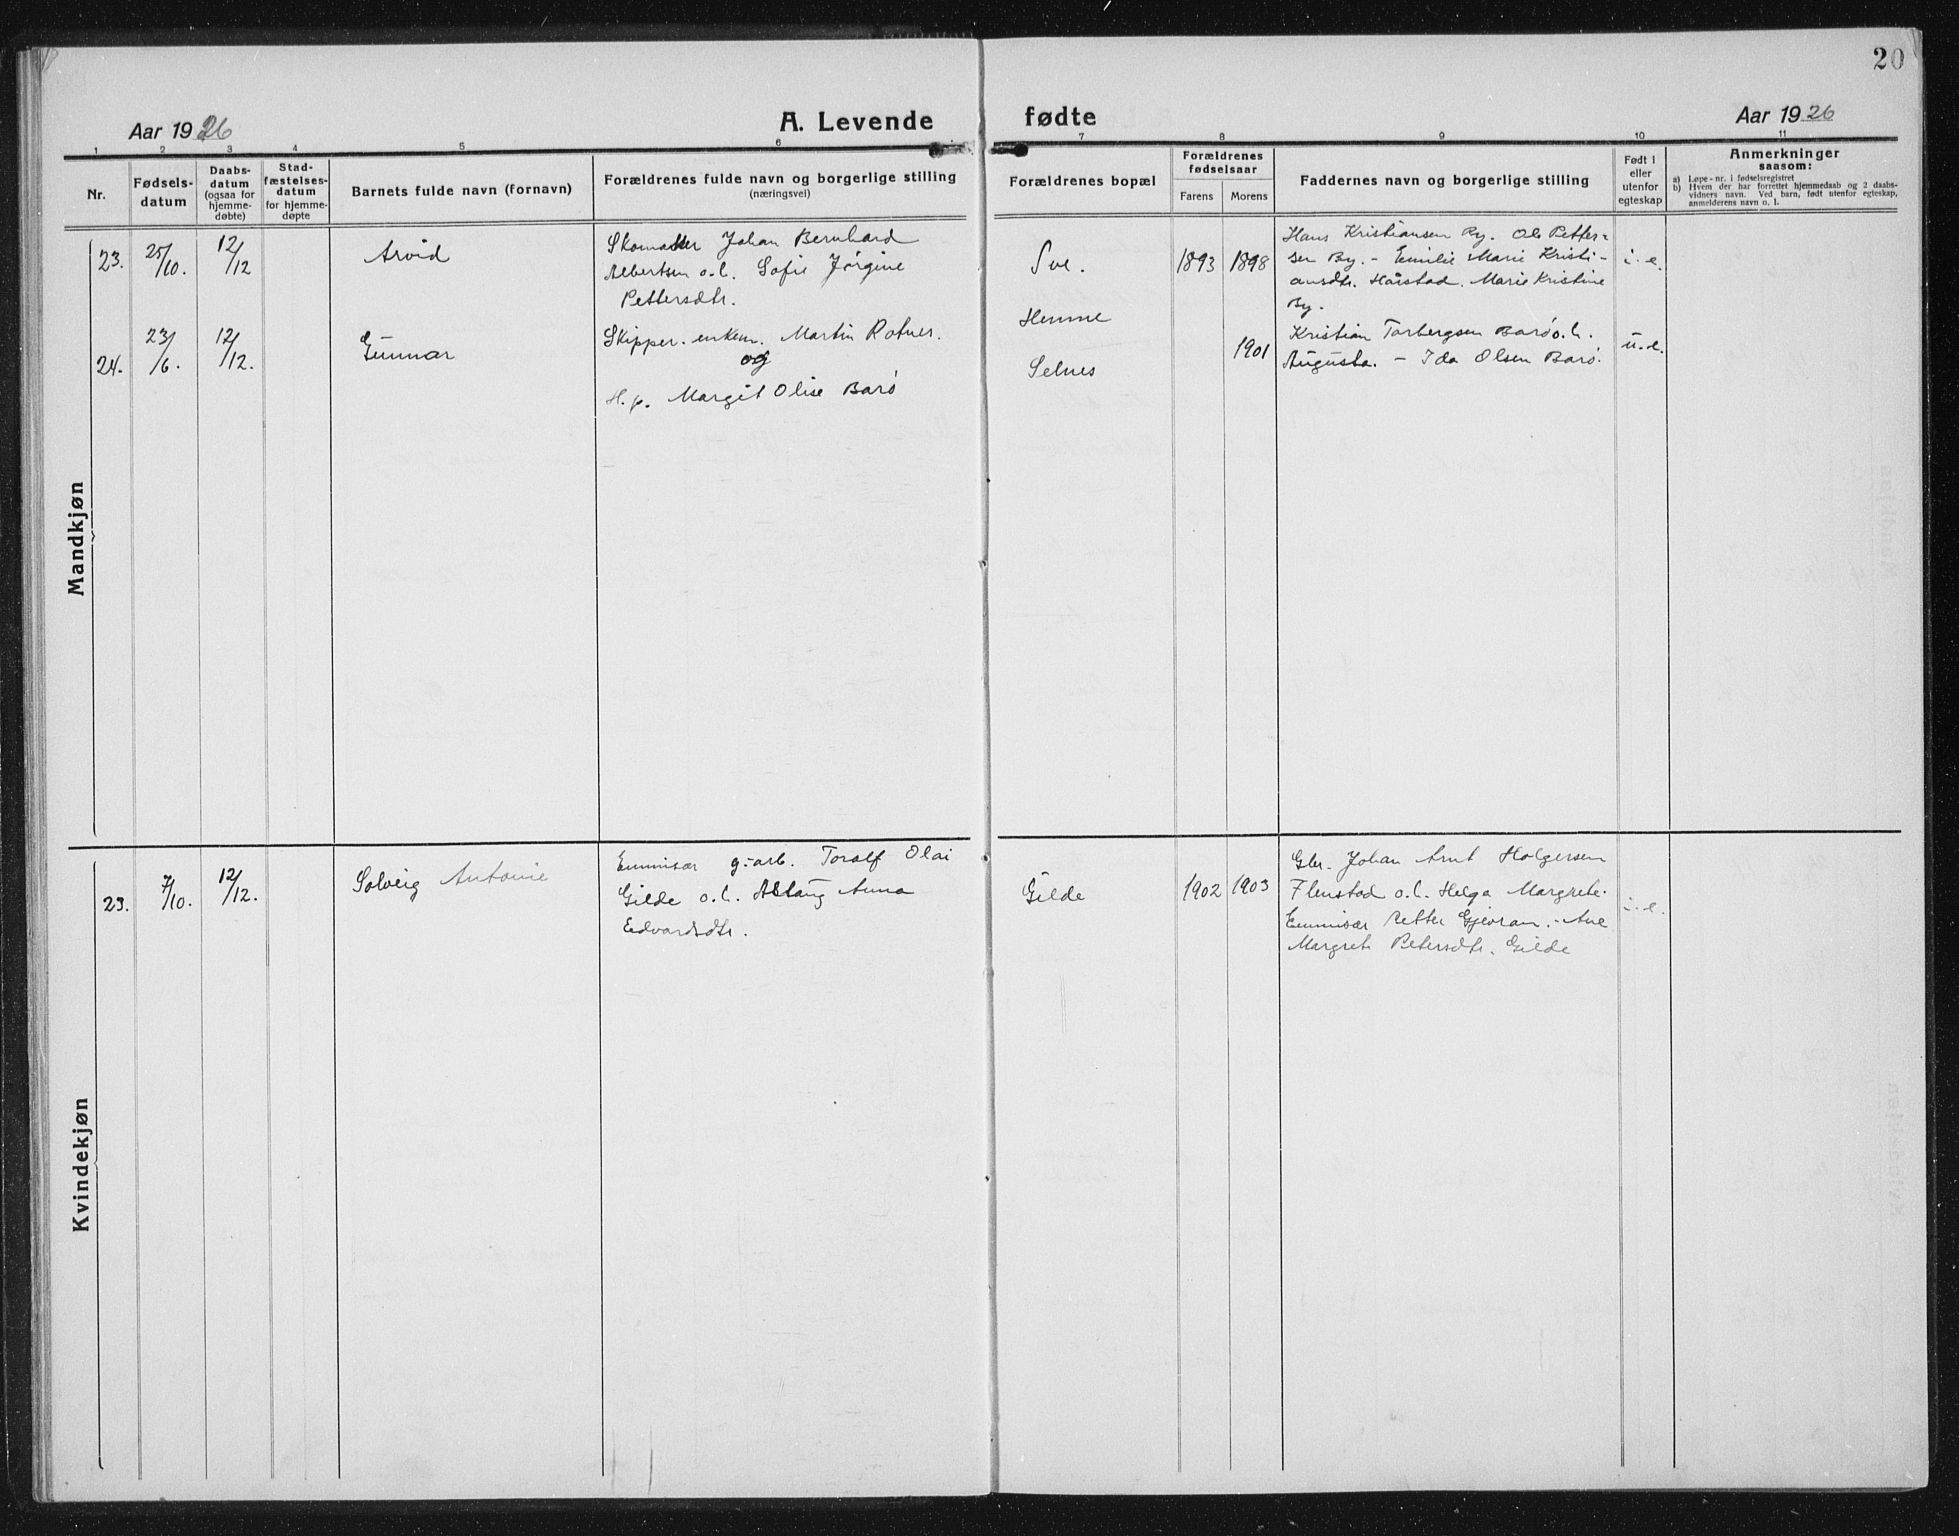 20
Aar 1926
A. Levende
fødte
Aar 1926
1 2 3 4 5 6 7 8 9 10 11
Nr.
Fødsels-
datum
Daabs-
datum
(ogsaa for
hjemme-
døbte)
Stad-
fæstelses-
datum
for hjemme-
døpte
Barnets fulde navn (fornavn)
Forældrenes fulde navn og borgerlige stilling
(næringsvei)
Forældrenes bopæl
Forældrenes
fødselsaar
Farens
Morens
Faddernes navn og borgerlige stilling
Født i
eller
utenfor
egteskap
Anmerkninger
saasom:
a) Løpe-nr. i fødselsregistret
b) Hvem der har forrettet hjemmedaab og 2 daabs-
vidners navn. Ved barn, født utenfor egteskap,
anmelderens navn o. l.
Mandkjøn
23. 25/10. 12/12
Arvid
Skomaker Johan Bernhard
Albertsen o.l. Sofie Jørgine
Pettersdtr.
Sve.
1893 1898
Hans Kristiansen By. Ole Petter=
sen By. - Emilie Marie Kristi-
ansdtr. Hårstad. Marie Kristine
By.
i. e.
24. 23/6. 12/12.
Gunnar
Skipper. enkem. Martin Rotnes.
og
H.p. Margit Olise Barø
Hemne
Selnes
1901
Kristian Torbergsen Barø o.l.
Augusta. - Ida Olsen Barø.
u. e.
Kvindekjøn
23. 7/10. 12/12.
Solveig Antonie
Emmisær g.-arb. Toralf Olai
Gilde o.l. Aslaug Anna
Edvardsdtr.
Gilde
1902 1903
Gbr. Johan Arnt Holgersen
Flenstad o.l. Helga Margrete.
Emmisær Petter Gjevran. - Ane
Margrete Petersdtr. Gilde
i. e.